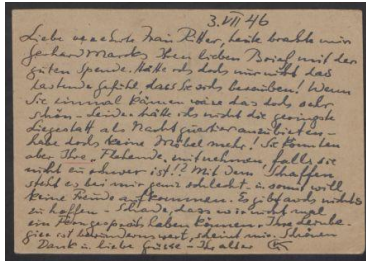 3. VII 46
Liebe verehrte Frau Ritter, heute brachte mir
Gerhard Marcks Ihren lieben Brief mit der
guten Spende. Hätte ich doch nur nicht das
lastende Gefühl, dass Sie sich berauben! Wenn
Sie einmal kämen wäre das doch sehr
schön - Leider hätte ich nicht die geringste
Liegestatt als Nachtquartier anzubieten -
habe doch keine Möbel mehr! Sie könnten
aber Ihre mitnehmen, falls sie
nicht zu schwer ist!? Mit dem Schaffen
steht es bei mir ganz schlecht, u. sonst will
keine Freude aufkommen. Es gibt auch nichts
zu hoffen - Schade, dass wir nicht mal
ein Ferngespräch haben können. Ihre Energie
ist bewundernswert, scheint mir. Schönen
Dank u. liebe Grüsse - Ihr alter